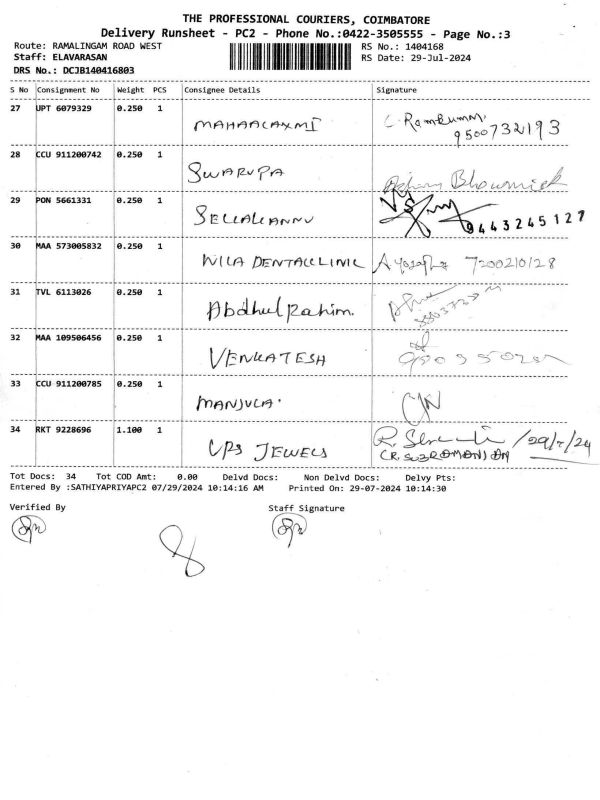 THE PROFESSIONAL COURIERS, COIMBATORE
Delivery Runsheet - PC2 - Phone No.:0422-3505555 - Page No.:3
Route: RAMALINGAM ROAD WEST RS No.: 1404168
Staff: ELAVARASAN RS Date: 29-Jul-2024
DRS No.: DCJB140416803
S No Consignment No Weight PCS Consignee Details Signature
27 UPT 6079329 0.250 1 MAHAALAXMI C. Ramkumar
9500732193
28 CCU 911200742 0.250 1 SWARUPA Bhowmick
29 PON 5661331 0.250 1 SELLAKANNU VS
9443245127
30 MAA 573005832 0.250 1 NILA DENTALCLINIC 7200210128
31 TVL 6113026 0.250 1 Abdhul Rahim.
32 MAA 109506456 0.250 1 VENKATESH
33 CCU 911200785 0.250 1 MANJULA.
34 RKT 9228696 1.100 1 VPS JEWELS R. /29/7/24
(R.SUBRAMONIAM
Tot Docs: 34 Tot COD Amt: 0.00 Delvd Docs: Non Delvd Docs: Delvy Pts:
Entered By :SATHIYAPRIYAPC2 07/29/2024 10:14:16 AM Printed On: 29-07-2024 10:14:30
Verified By Staff Signature